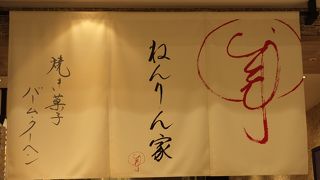 ねんりん家
焼き菓子
バームクーヘン